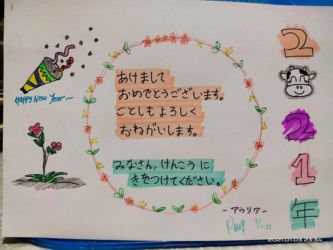 Happy New Year
あけまして
おめでとうございます。
ことしもよろしく
おねがいします。
みなさん、けんこうに
きをつけてください。
2
2
1
年
- アウリア -
2021.01.03 23:34